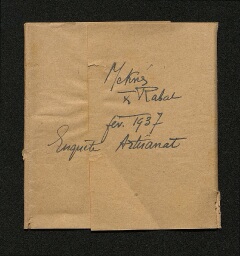 Meknès
& Rabat
fev. 1937
Enquête Artisanat